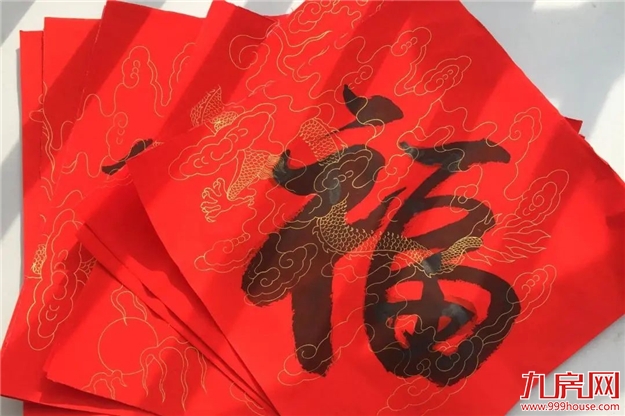 福
九房网
www.999house.com